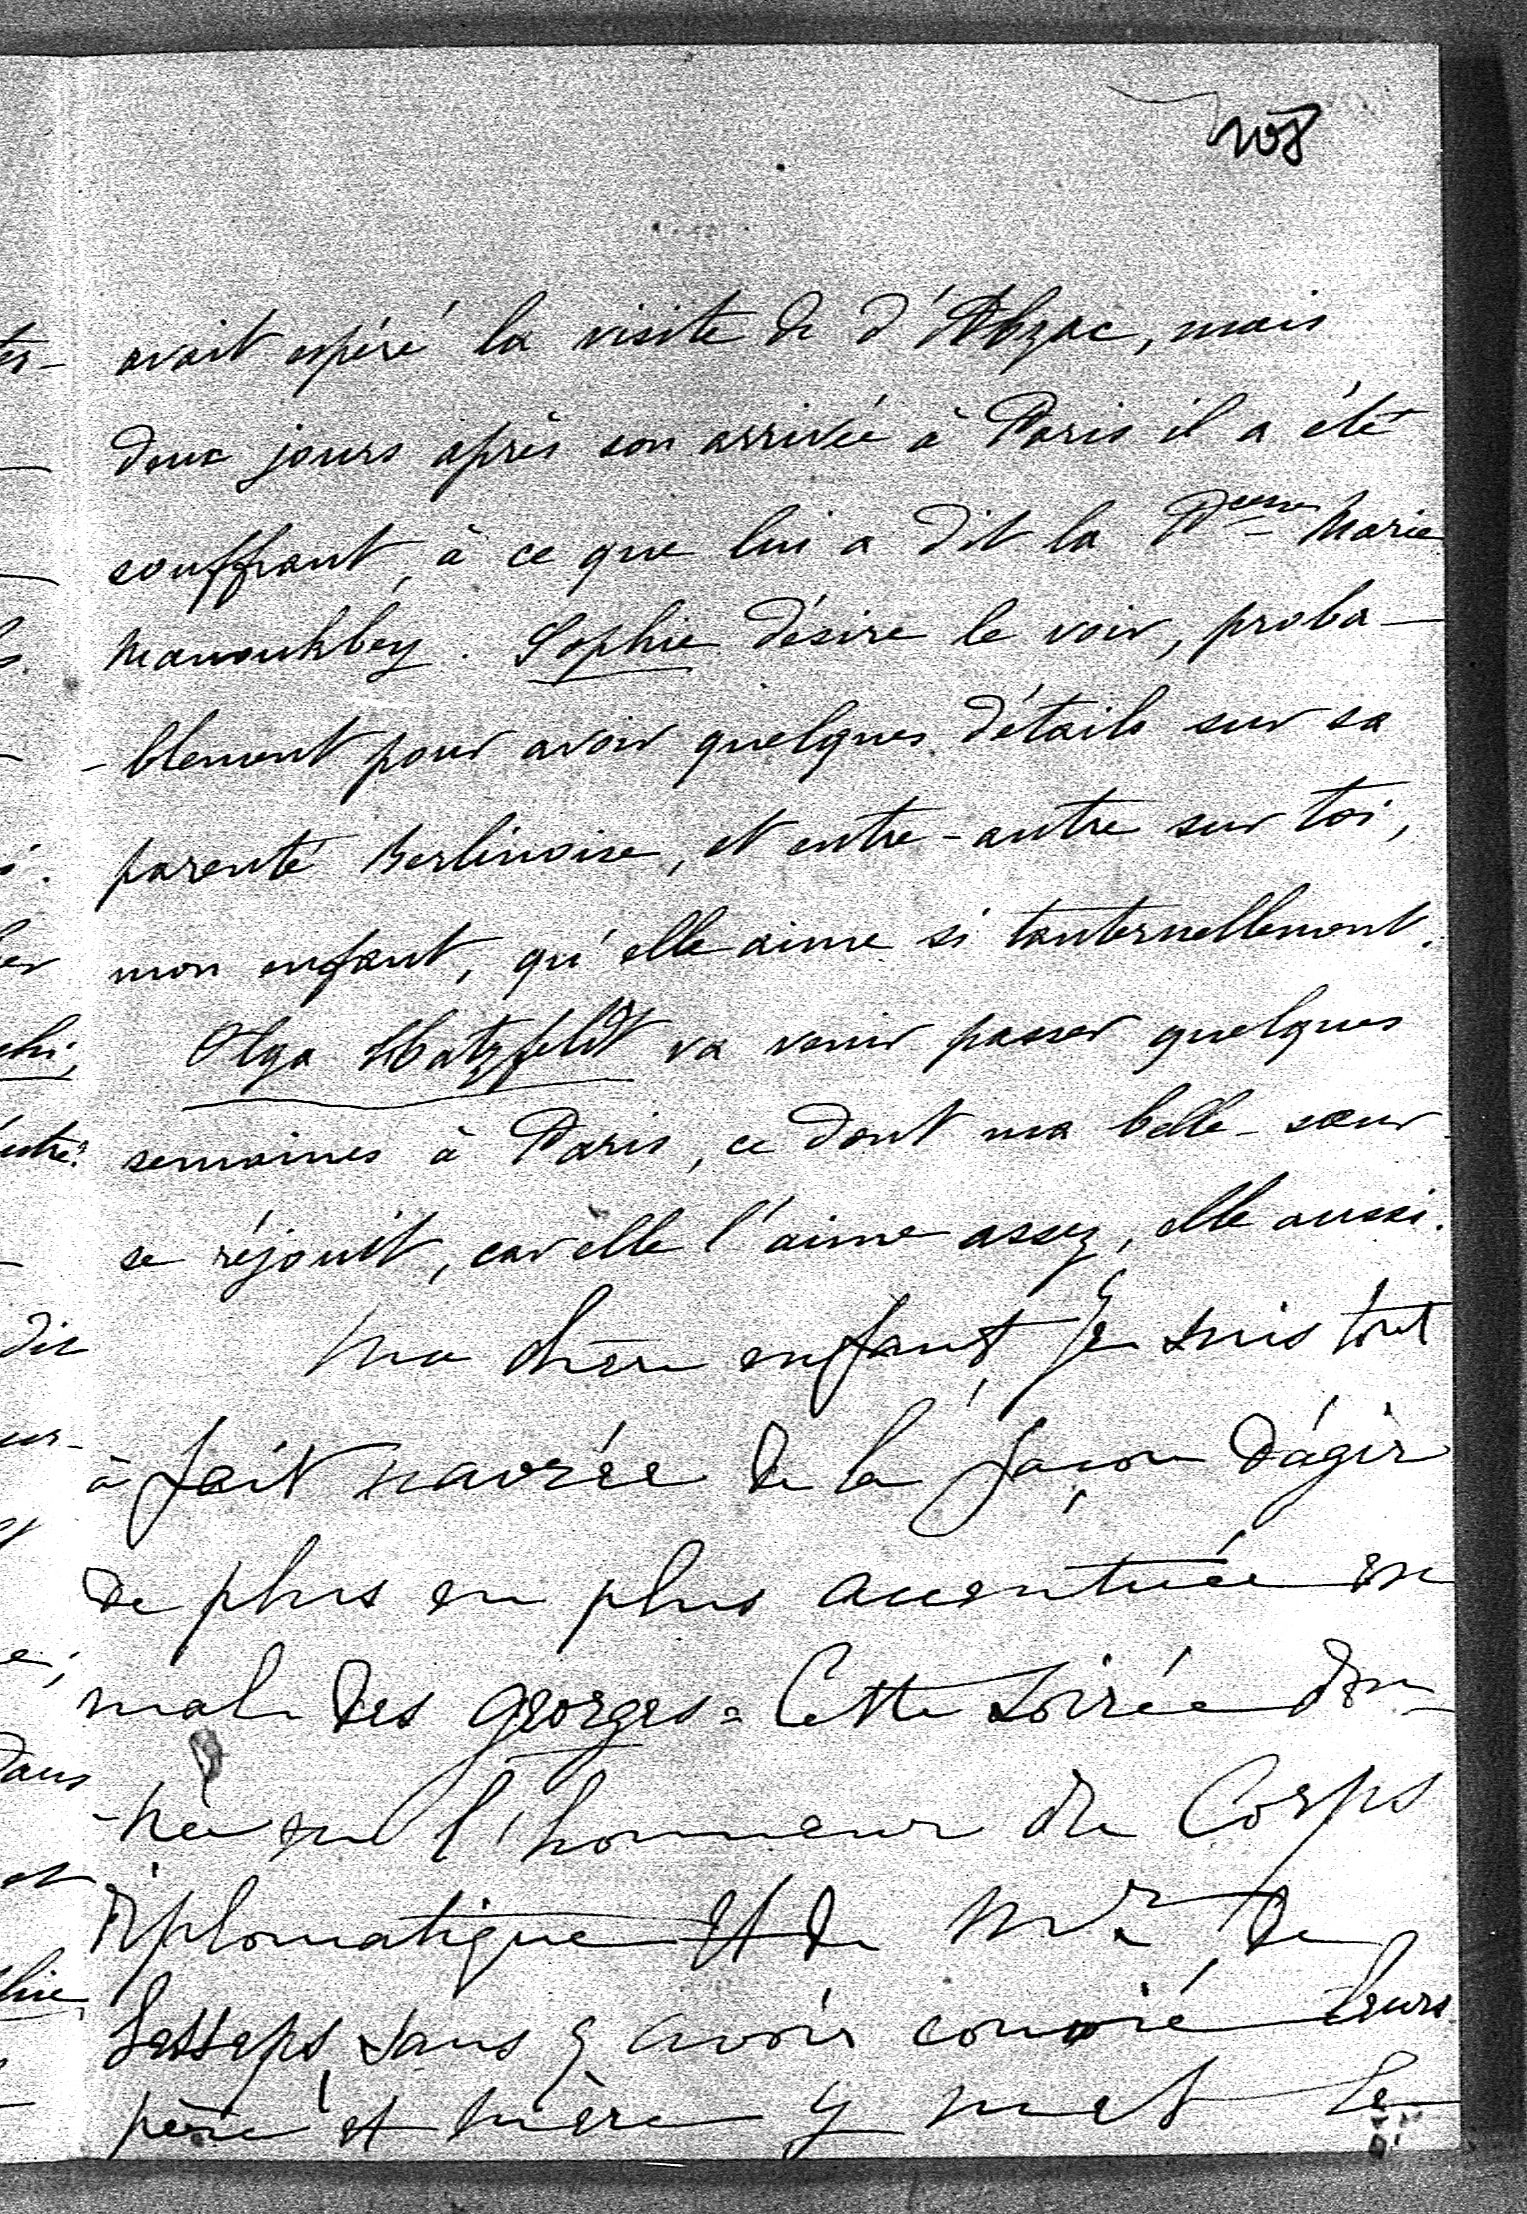 208
avait espéré la visite de d'Abzac, mais
deux jours après son arrivée à Paris il a été
souffrant, à ce que lui a dit la Pcesse Marie
Manoukbey. Sophie désire le voir, proba-
-blement pour avoir quelques détails sur sa
parenté Berlinoise, et entre-autre sur toi,
mon enfant, qu'elle aime si tanternellement.
Olga Hatzfeldt va venir passer quelques
semaines à Paris, ce dont ma belle-soeur
se réjouit, car elle l'aime assez, elle aussi.
Ma chère enfant, Je suis tout
à fait navrée de la façon d'agir
de plus en plus accentuée en
mal des Georges = Cette soirée don-
-née en l'honneur du Corps
diplomatique et de Mr de
Lesseps, sans y avoir convié leurs
père et mère y met le